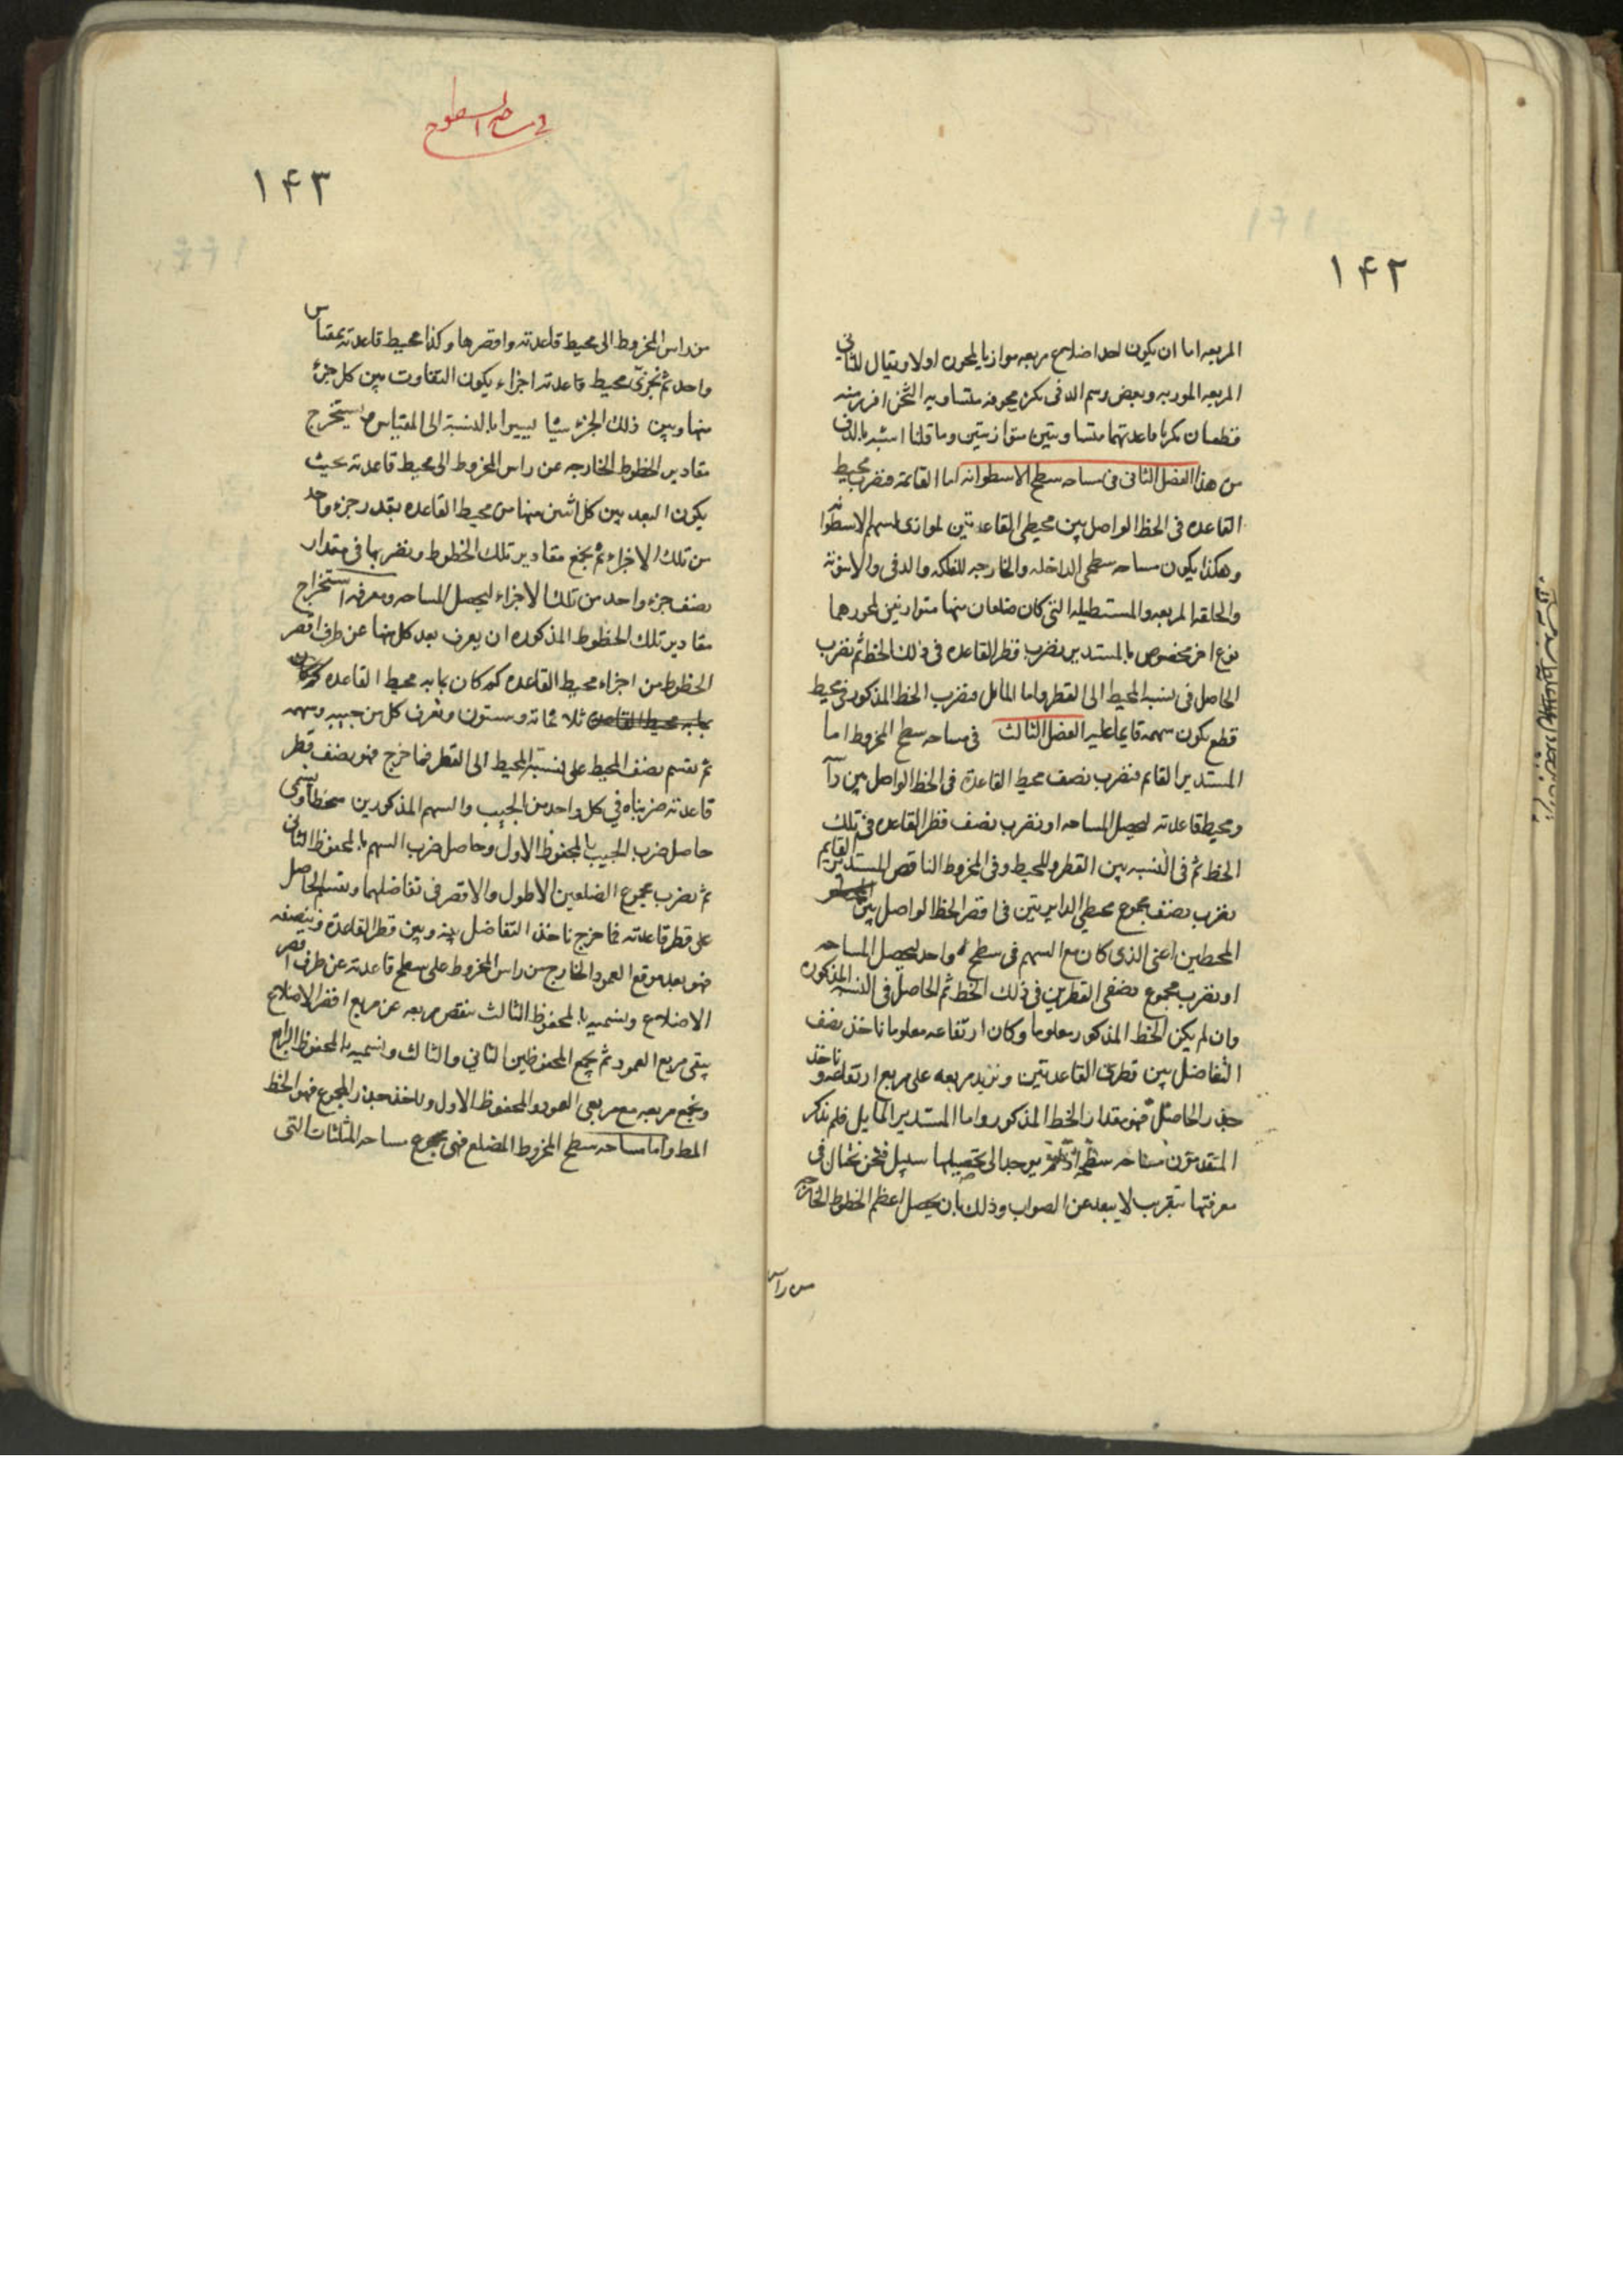 ١۴٢
المربعه اما ان يكون احد اضلاع مربعه موازيا لمحوره اولا ويقال للثانى
المربعه الموربه وبعض رسم الدفى بكره مجوفه متساويه الثخن افرز منه
قطعتان بكريا قاعدتهما متساويتين متوازيتين وما قلنا اشبه بالدف
من هذا الفصل الثانى فى مساحه سطح الاسطوانه اما القائمه فنضرب محيط
القاعده فى الخط الواصل بين محيطى القاعدتين الموازى لسهم الاسطوانه
وهكذا يكون مساحه سطحى الداخله والخارجه للفلكه والدفى والاسونه
والحلقه المربعه والمستطيله التى كان ضلعان منها متوازيين لمحورهما
نوع اخر مخصوص بالمستدير نضرب قطر القاعده فى ذلك الخط ثم نضرب
الحاصل فى نسبه المحيط الى القطر واما المائل فنضرب الخط المذكور فى محيط
قطع يكون سهمه قايما عليه الفصل الثالث فى مساحه سطح المخروط اما
المستدير القائم فنضرب نصف محيط القاعدة فى الخط الواصل بين راسه
ومحيط قاعدته ليحصل المساحه او نضرب نصف قطر القاعده فى تلك
الخط ثم فى النسبه بين القطر والمحيط وفى المخروط الناقص المستدير القايم
نضرب نصف مجموع محيطى الدايرتين فى اقصر الخط الواصل بين
المحيطين اعنى الذى كان مع السهم فى سطح واحد ليحصل المساحه
او نضرب مجموع نصفى القطرين فى ذلك الخط ثم الحاصل فى النسبه المذكوره
وان لم يكن الخط المذكور معلوما وكان ارتفاعه معلوما ناخذ نصف
التفاضل بين قطرى القاعدتين ونزيد مربعه على مربع ارتفاعه و ناخذ
جذر الحاصل فهو مقدار الخط المذكور واما المستدير المايل فلم يذكر
المتقدمون مساحه سطحه اذ لم يوجد الى تحصيلها سبيل فنحن نحتال فى
معرفتها بتقريب لا يبعد عن الصواب وذلك بان يحصل اعظم الخطوط الخارجه
من راس
فى مساحة السطوح
١۴٣
من راس المخروط الى محيط قاعدته واقصرها وكذا محيط قاعدته بمقياس
واحد ثم نجزئ محيط قاعدته اجزاء يكون التفاوت بين كل جزء
منها وبين ذلك الجزء شيا يسيرا بالنسبة الى المقياس و يستخرج
مقادير الخطوط الخارجه عن راس المخروط الى محيط قاعدته بحيث
يكون البعد بين كل اثنين منها من محيط القاعده بقدر جزء واحد
من تلك الاجزاء ثم نجمع مقادير تلك الخطوط ونضربها فى مقدار
نصف جزء واحد من تلك الاجزاء ليحصل المساحه ومعرفه استخراج
مقادير تلك الخطوط المذكوره ان يعرف بعد كل منها عن طرف اقصر
الخطوط من اجزاء محيط القاعده كم كان بما به محيط القاعده
ثلاثمائه وستون ونعرف كل من جيبه وسهمه
ثم نقسم نصف المحيط على نسبة المحيط الى القطر فما خرج فهو نصف قطر
قاعدته ضربناه فى كل واحد من الجيب والسهم المذكورين منحطا ونسمى
حاصل ضرب الجيب بالمحفوظ الاول وحاصل ضرب السهم بالمحفوظ الثانى
ثم نضرب مجموع الضلعين الاطول والاقصر فى تفاضلهما ونقسم الحاصل
على قطر قاعدته فما خرج ناخذ التفاضل بينه وبين قطر القاعدة وننصفه
فهو بعد موقع العمود الخارج من راس المخروط على سطح قاعدته عن طرف اقصر
الاضلاع ونسميه بالمحفوظ الثالث ننقص مربعه عن مربع اقصر الاضلاع
يبقى مربع العمود ثم نجمع المحفوظين الثانى والثالث ونسميه بالمحفوظ الرابع
ونجمع مربعه مع مربعى العمود والمحفوظ الاول وناخذ جذر المجموع فهو الخط
المط واما مساحه سطح المخروط المضلع فهى مجموع مساحه المثلثات التى